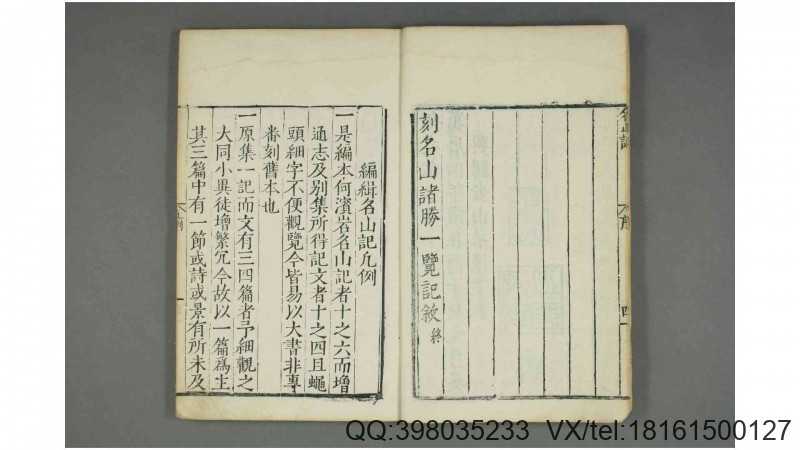 刻名山諸勝一覽記敘 終
編緝名山記凡例
一是編本何濱岩名山記者十之六而增
通志及别集所得記文者十之四且蠅
頭細字不便觀覽今皆易以大書非專
畨刻舊本也
一原集一記而文有三四篇者予細觀之
大同小異徒增繁冗今故以一篇爲主
其三篇中有一節或詩或景有所未及
QQ:398035233 VX/tel:18161500127